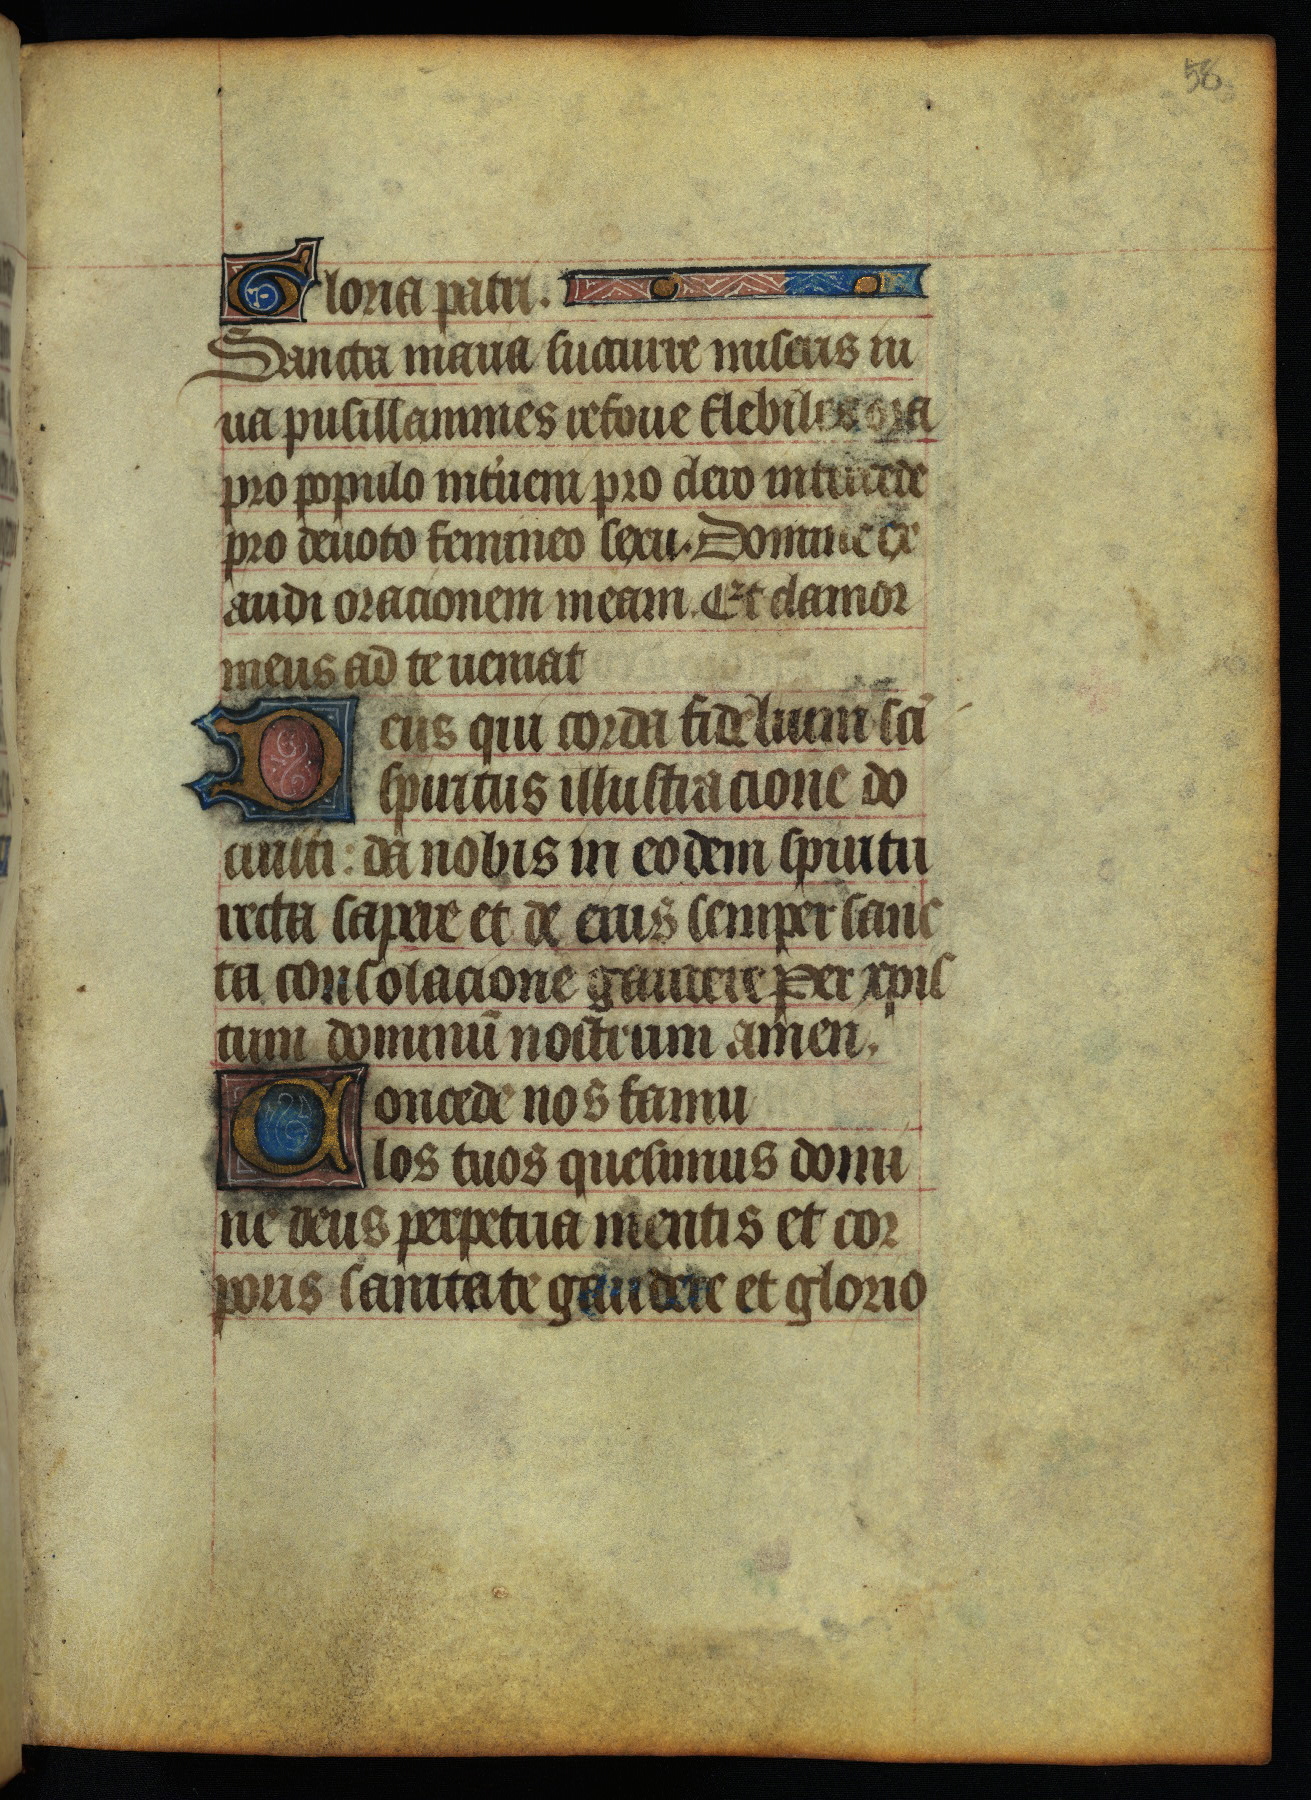 58
Gloria patri.
Sancta maria succurre miseris iu
ua pusillanimes refoue flebiles ora
pro populo int'ueni pro clero intercede
pro deuoto femineo sexu. Domine ex
audi oracionem meam. Et clamor
meus ad te ueniat
Deus qui corda fidelium sci̅
spiritus illustracione do
cuisti: da nobis in eodem spiritu
recta sapere et de eius semper sanc
ta consolacione gaudere Per xpis
tum dominu̅ nostrum amen.
Concede nos famu
los tuos quesumus domi
ne deus perpetua mentis et cor
poris sanitate gaudere et glorio